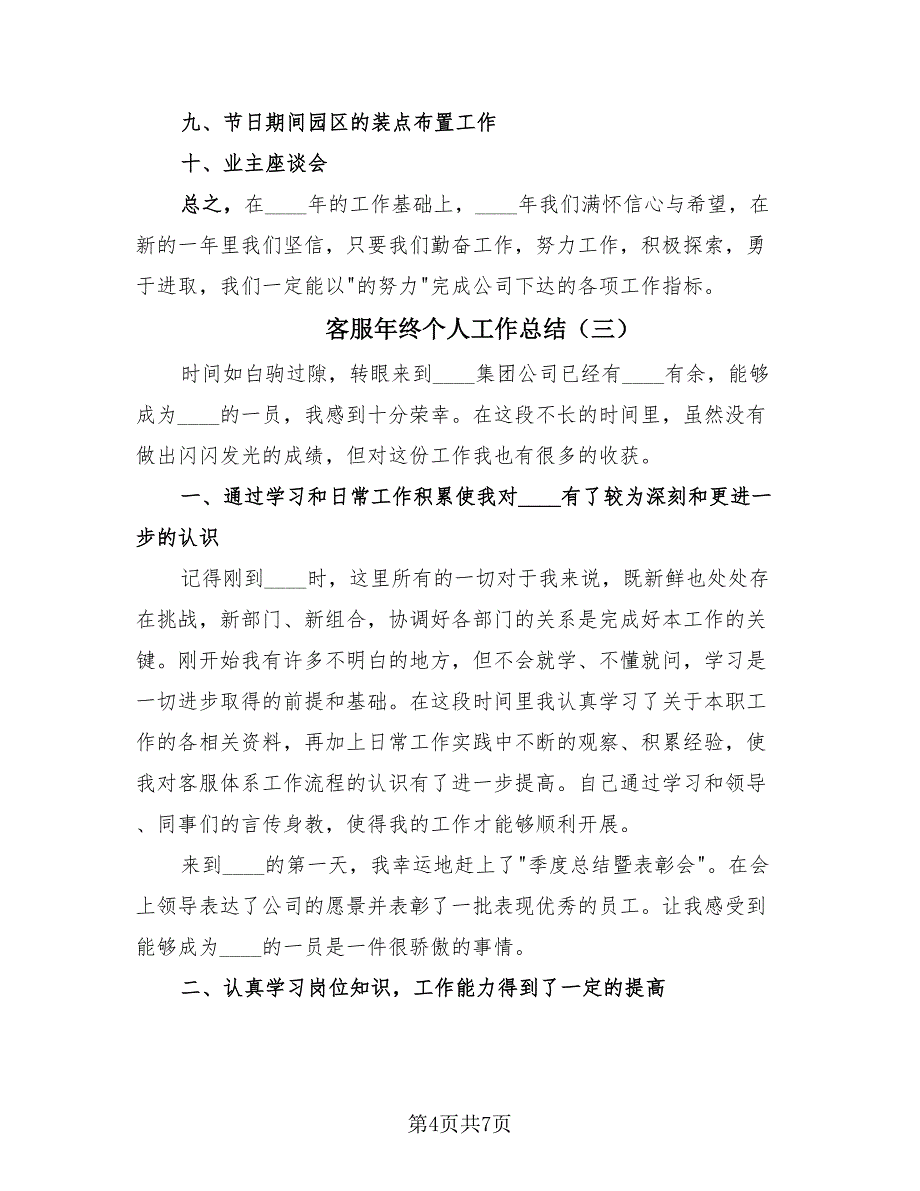 九、节日期间园区的装点布置工作
十、业主座谈会
总之，在____年的工作基础上，____年我们满怀信心与希望，在
新的一年里我们坚信，只要我们勤奋工作，努力工作，积极探索，勇
于进取，我们一定能以"的努力"完成公司下达的各项工作指标。
客服年终个人工作总结（三）
时间如白驹过隙，转眼来到____集团公司已经有____有余，能够
成为____的一员，我感到十分荣幸。在这段不长的时间里，虽然没有
做出闪闪发光的成绩，但对这份工作我也有很多的收获。
一、通过学习和日常工作积累使我对____有了较为深刻和更进一
步的认识
记得刚到____时，这里所有的一切对于我来说，既新鲜也处处存
在挑战，新部门、新组合，协调好各部门的关系是完成好本工作的关
键。刚开始我有许多不明白的地方，但不会就学、不懂就问，学习是
一切进步取得的前提和基础。在这段时间里我认真学习了关于本职工
作的各相关资料，再加上日常工作实践中不断的观察、积累经验，使
我对客服体系工作流程的认识有了进一步提高。自己通过学习和领导
、同事们的言传身教，使得我的工作才能够顺利开展。
来到____的第一天，我幸运地赶上了"季度总结暨表彰会"。在会
上领导表达了公司的愿景并表彰了一批表现优秀的员工。让我感受到
能够成为____的一员是一件很骄傲的事情。
二、认真学习岗位知识，工作能力得到了一定的提高
第4页共7页